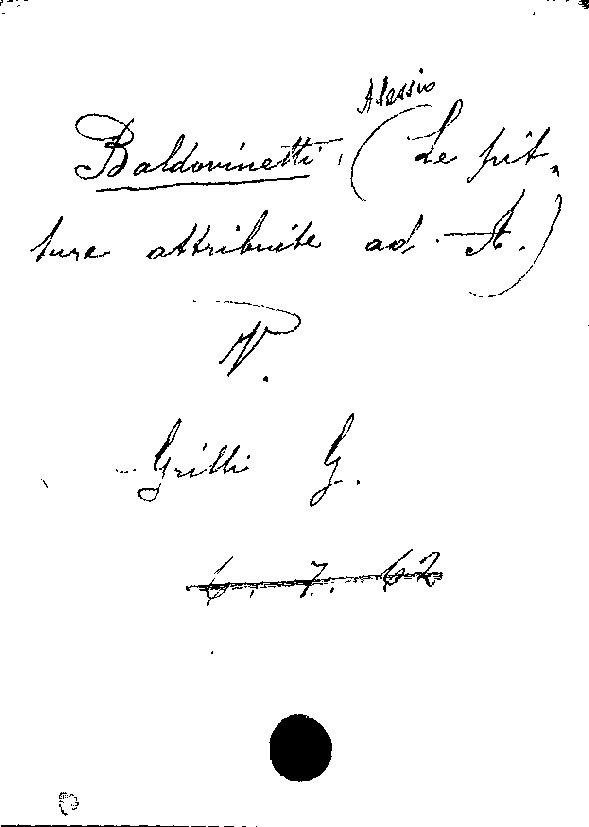 Alessio
Baldovinetti, (Le pit-
ture attribuite ad A.)
V.
Grilli G.
6. 7. 62